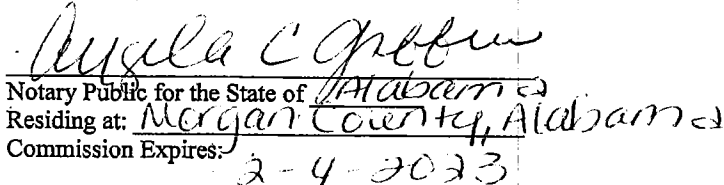 Angela C Griffin
Notary Public for the State of Alabama
Residing at: Morgan County, Alabama
Commission Expires: 2-4-2023